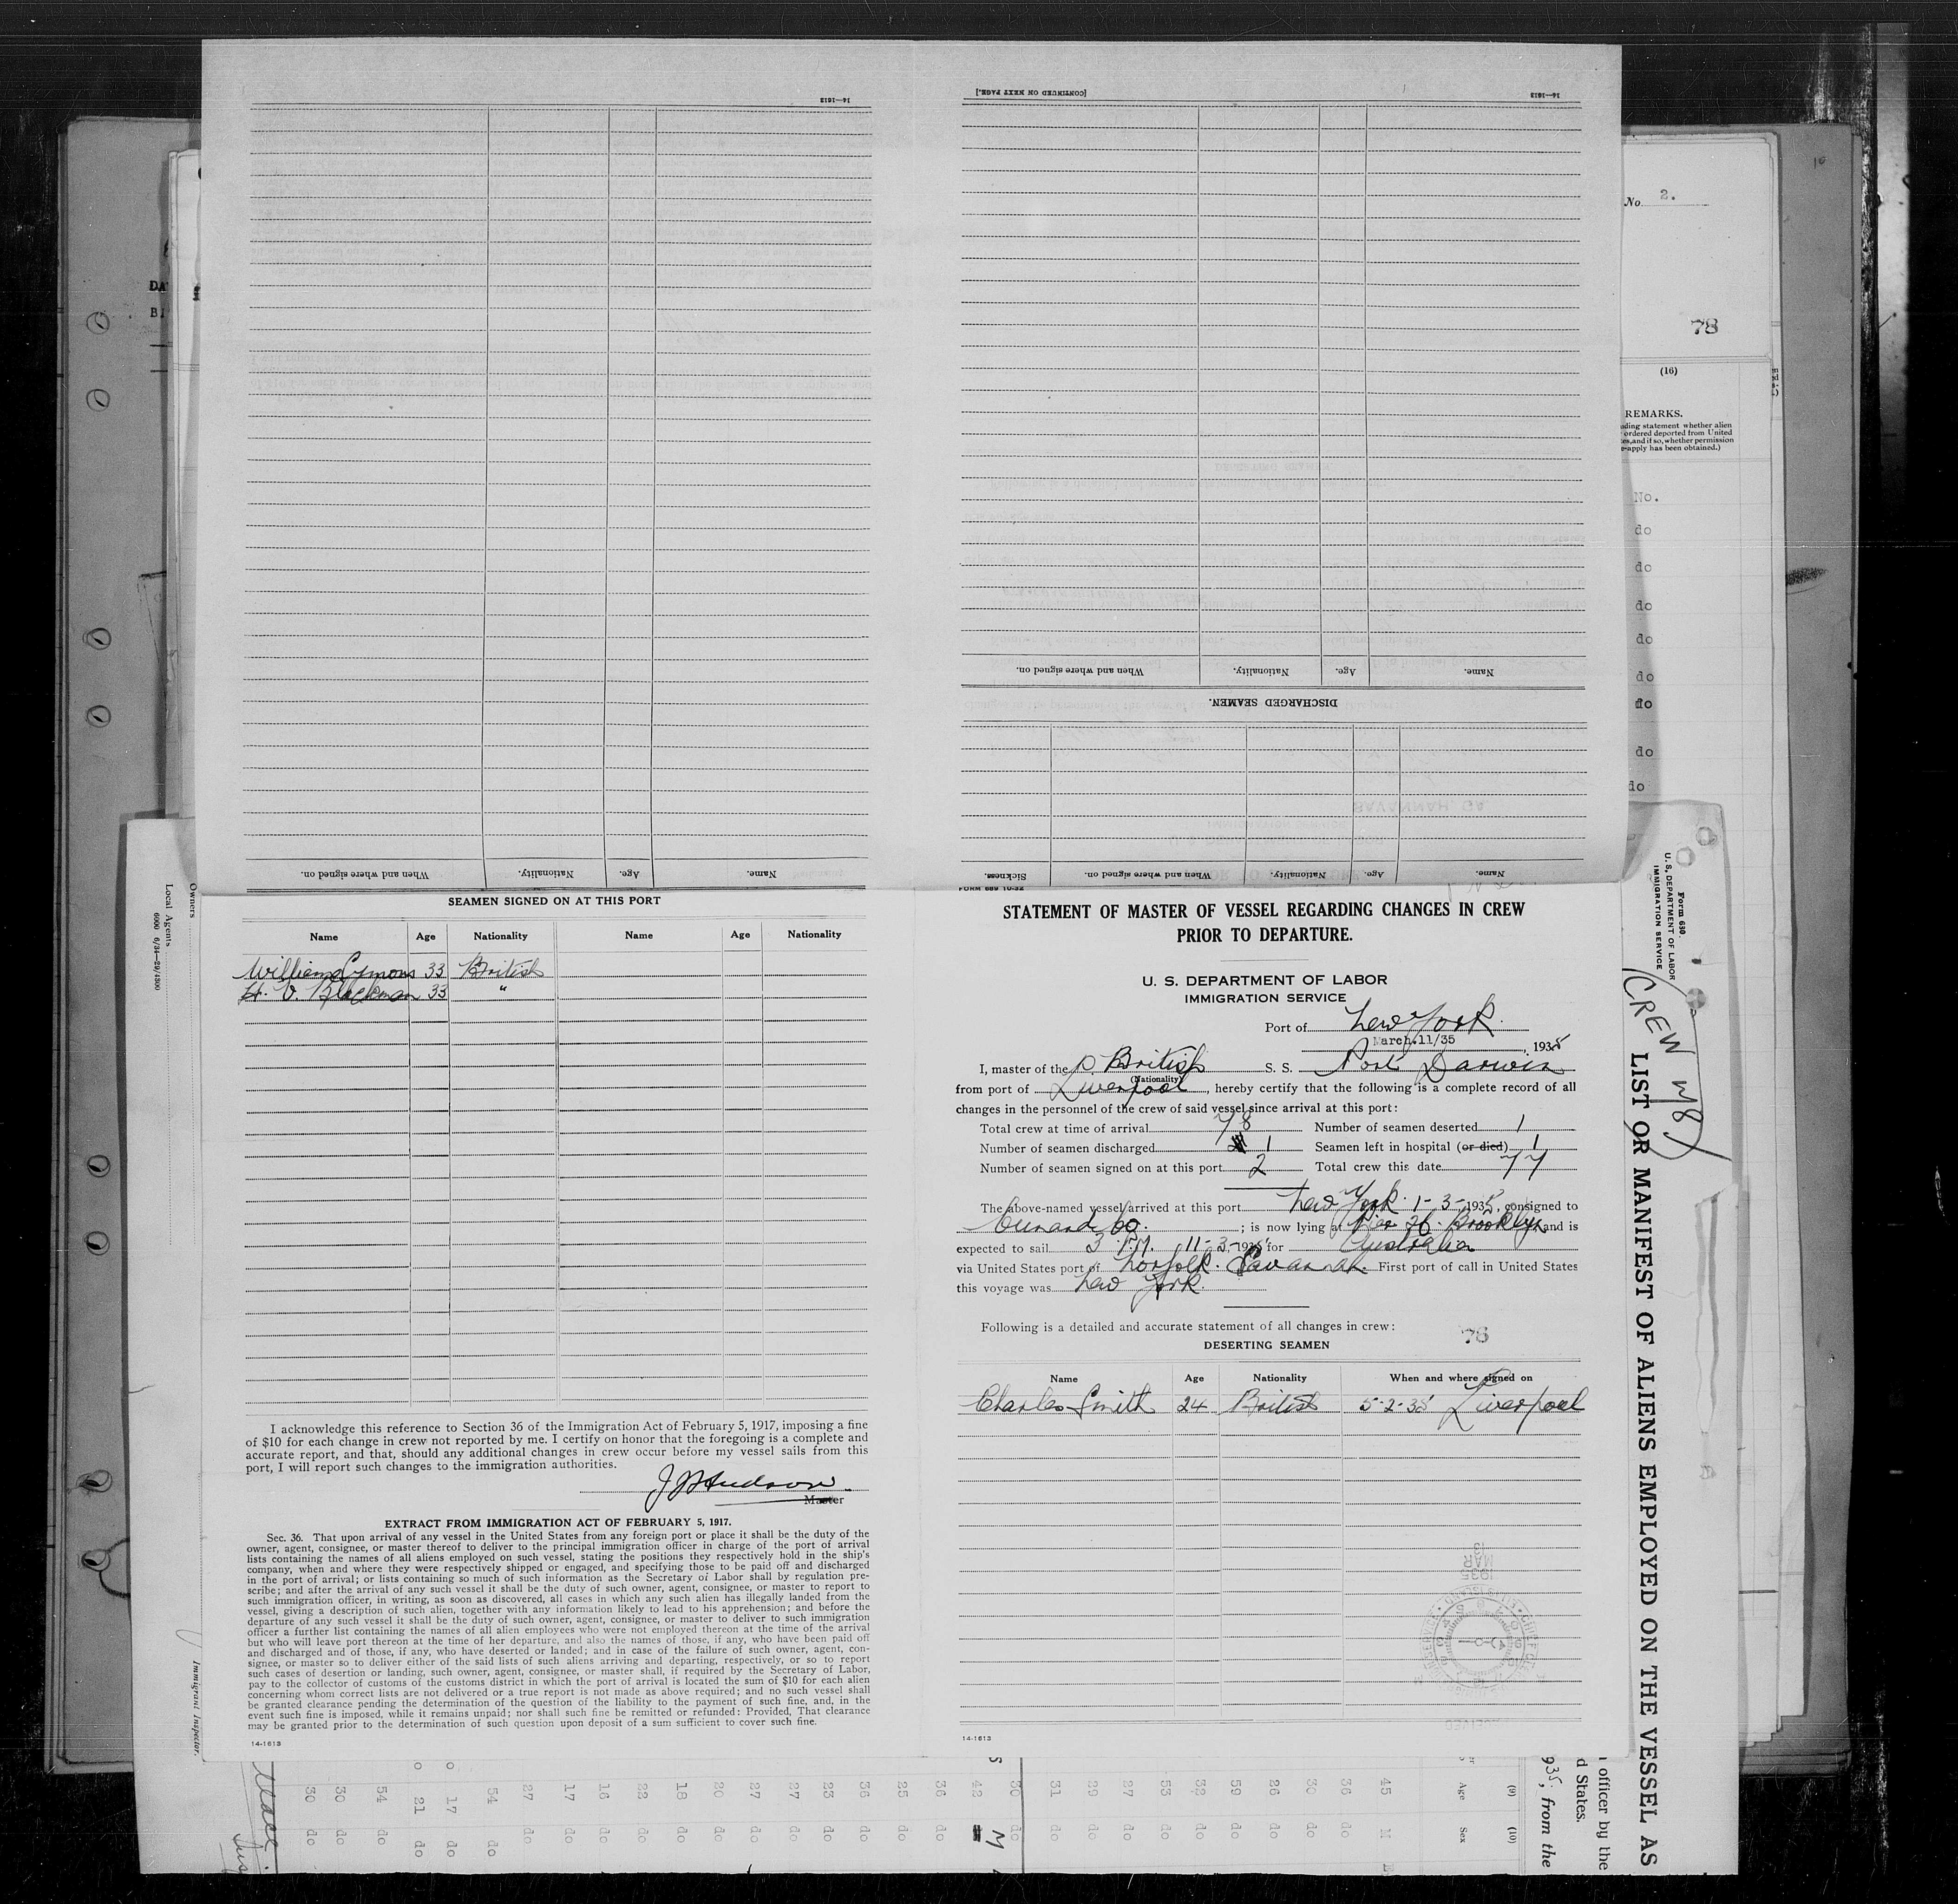 14—1613
[CONTINUED ON NEXT PAGE.]
14—1613
No. 2.
10
78
(16)
REMARKS.
ding statement whether alien
ordered deported from United
es, and if so, whether permission
e-apply has been obtained.)
No.
do
do
do
do
do
do
do
do
When and where signed on. Nationality. Age. Name.
DISCHARGED SEAMEN.
When and where signed on. Nationality. Age. Name.
Sickness. When and where signed on. Nationality. Age. Name.
SEAMEN SIGNED ON AT THIS PORT
Name Age Nationality Name Age Nationality
William Symons 33 British
H. V. Blackman 33 "
I acknowledge this reference to Section 36 of the Immigration Act of February 5, 1917, imposing a fine
of $10 for each change in crew not reported by me. I certify on honor that the foregoing is a complete and
accurate report, and that, should any additional changes in crew occur before my vessel sails from this
port, I will report such changes to the immigration authorities.
J Hudson
Master
EXTRACT FROM IMMIGRATION ACT OF FEBRUARY 5, 1917.
Sec. 36. That upon arrival of any vessel in the United States from any foreign port or place it shall be the duty of the
owner, agent, consignee, or master thereof to deliver to the principal immigration officer in charge of the port of arrival
lists containing the names of all aliens employed on such vessel, stating the positions they respectively hold in the ship's
company, when and where they were respectively shipped or engaged, and specifying those to be paid off and discharged
in the port of arrival; or lists containing so much of such information as the Secretary of Labor shall by regulation pre-
scribe; and after the arrival of any such vessel it shall be the duty of such owner, agent, consignee, or master to report to
such immigration officer, in writing, as soon as discovered, all cases in which any such alien has illegally landed from the
vessel, giving a description of such alien, together with any information likely to lead to his apprehension; and before the
departure of any such vessel it shall be the duty of such owner, agent, consignee, or master to deliver to such immigration
officer a further list containing the names of all alien employees who were not employed thereon at the time of the arrival
but who will leave port thereon at the time of her departure, and also the names of those, if any, who have been paid off
and discharged and of those, if any, who have deserted or landed; and in case of the failure of such owner, agent, con-
signee, or master so to deliver either of the said lists of such aliens arriving and departing, respectively, or so to report
such cases of desertion or landing, such owner, agent, consignee, or master shall, if required by the Secretary of Labor,
pay to the collector of customs of the customs district in which the port of arrival is located the sum of $10 for each alien
concerning whom correct lists are not delivered or a true report is not made as above required; and no such vessel shall
be granted clearance pending the determination of the question of the liability to the payment of such fine, and, in the
event such fine is imposed, while it remains unpaid; nor shall such fine be remitted or refunded: Provided, That clearance
may be granted prior to the determination of such question upon deposit of a sum sufficient to cover such fine.
14-1613
FORM 689 10-32
STATEMENT OF MASTER OF VESSEL REGARDING CHANGES IN CREW
PRIOR TO DEPARTURE.
U. S. DEPARTMENT OF LABOR
IMMIGRATION SERVICE
Port of New York
March.11/35, 1935
I, master of the British S. S. Port Darwin
(Nationality)
from port of Liverpool, hereby certify that the following is a complete record of all
changes in the personnel of the crew of said vessel since arrival at this port:
Total crew at time of arrival 78 Number of seamen deserted 1
Number of seamen discharged 1 Seamen left in hospital (or died) 1
Number of seamen signed on at this port 2 Total crew this date 77
The above-named vessel arrived at this port New York. 1-3-1935, consigned to
Cunard Co.; is now lying at Pier 26. Brooklyn and is
expected to sail 3 P.M. 11-3-1935 for Australia
via United States port of Norfolk. Savanah. First port of call in United States
this voyage was New York.
Following is a detailed and accurate statement of all changes in crew:
76
DESERTING SEAMEN
Name Age Nationality When and where signed on
Charles Smith 24 British 5-2-35 Liverpool
1935
MAR
13
14-1613
Form 630
U. S. DEPARTMENT OF LABOR
IMMIGRATION SERVICE
(CREW 78)
LIST OR MANIFEST OF ALIENS EMPLOYED ON THE VESSEL AS
officer by the
d States.
935, from the
Owners
Local Agents
6000 6/34—29/4300
Immigrant Inspector.
(9) (10)
Age Sex
45 M
36 do
30 do
26 do
59 do
32 do
53 do
27 do
29 do
31 do
30 do
42 M
36 do
25 do
36 do
23 do
27 do
27 do
20 do
18 do
22 do
16 do
17 do
27 do
54 do
17 do
21 do
54 do
30 do
30 do